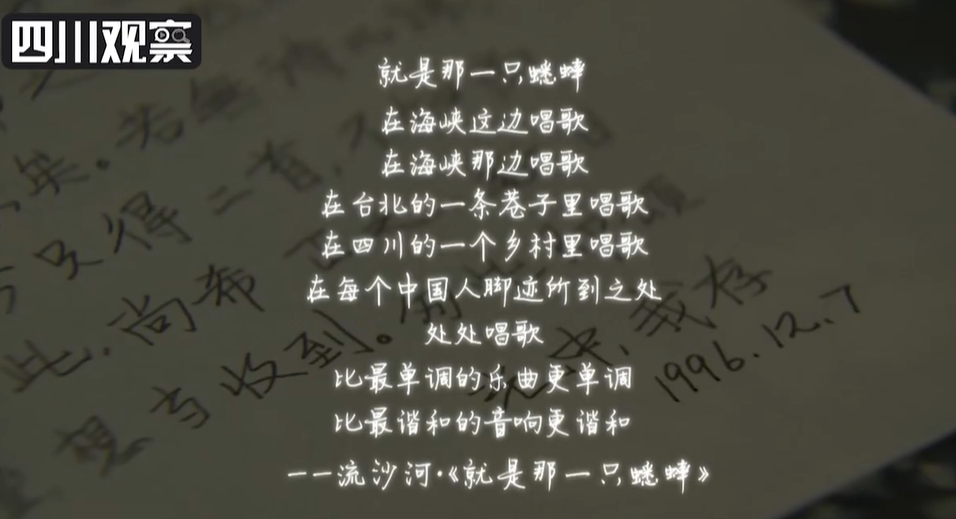 四川观察
就是那一只蟋蟀
在海峡这边唱歌
在海峡那边唱歌
在台北的一条巷子里唱歌
在四川的一个乡村里唱歌
在每个中国人脚迹所到之处
处处唱歌
比最单调的乐曲更单调
比最谐和的音响更谐和
——流沙河·《就是那一只蟋蟀》
只得二首
此，尚希
收到。
我存
1996.12.7